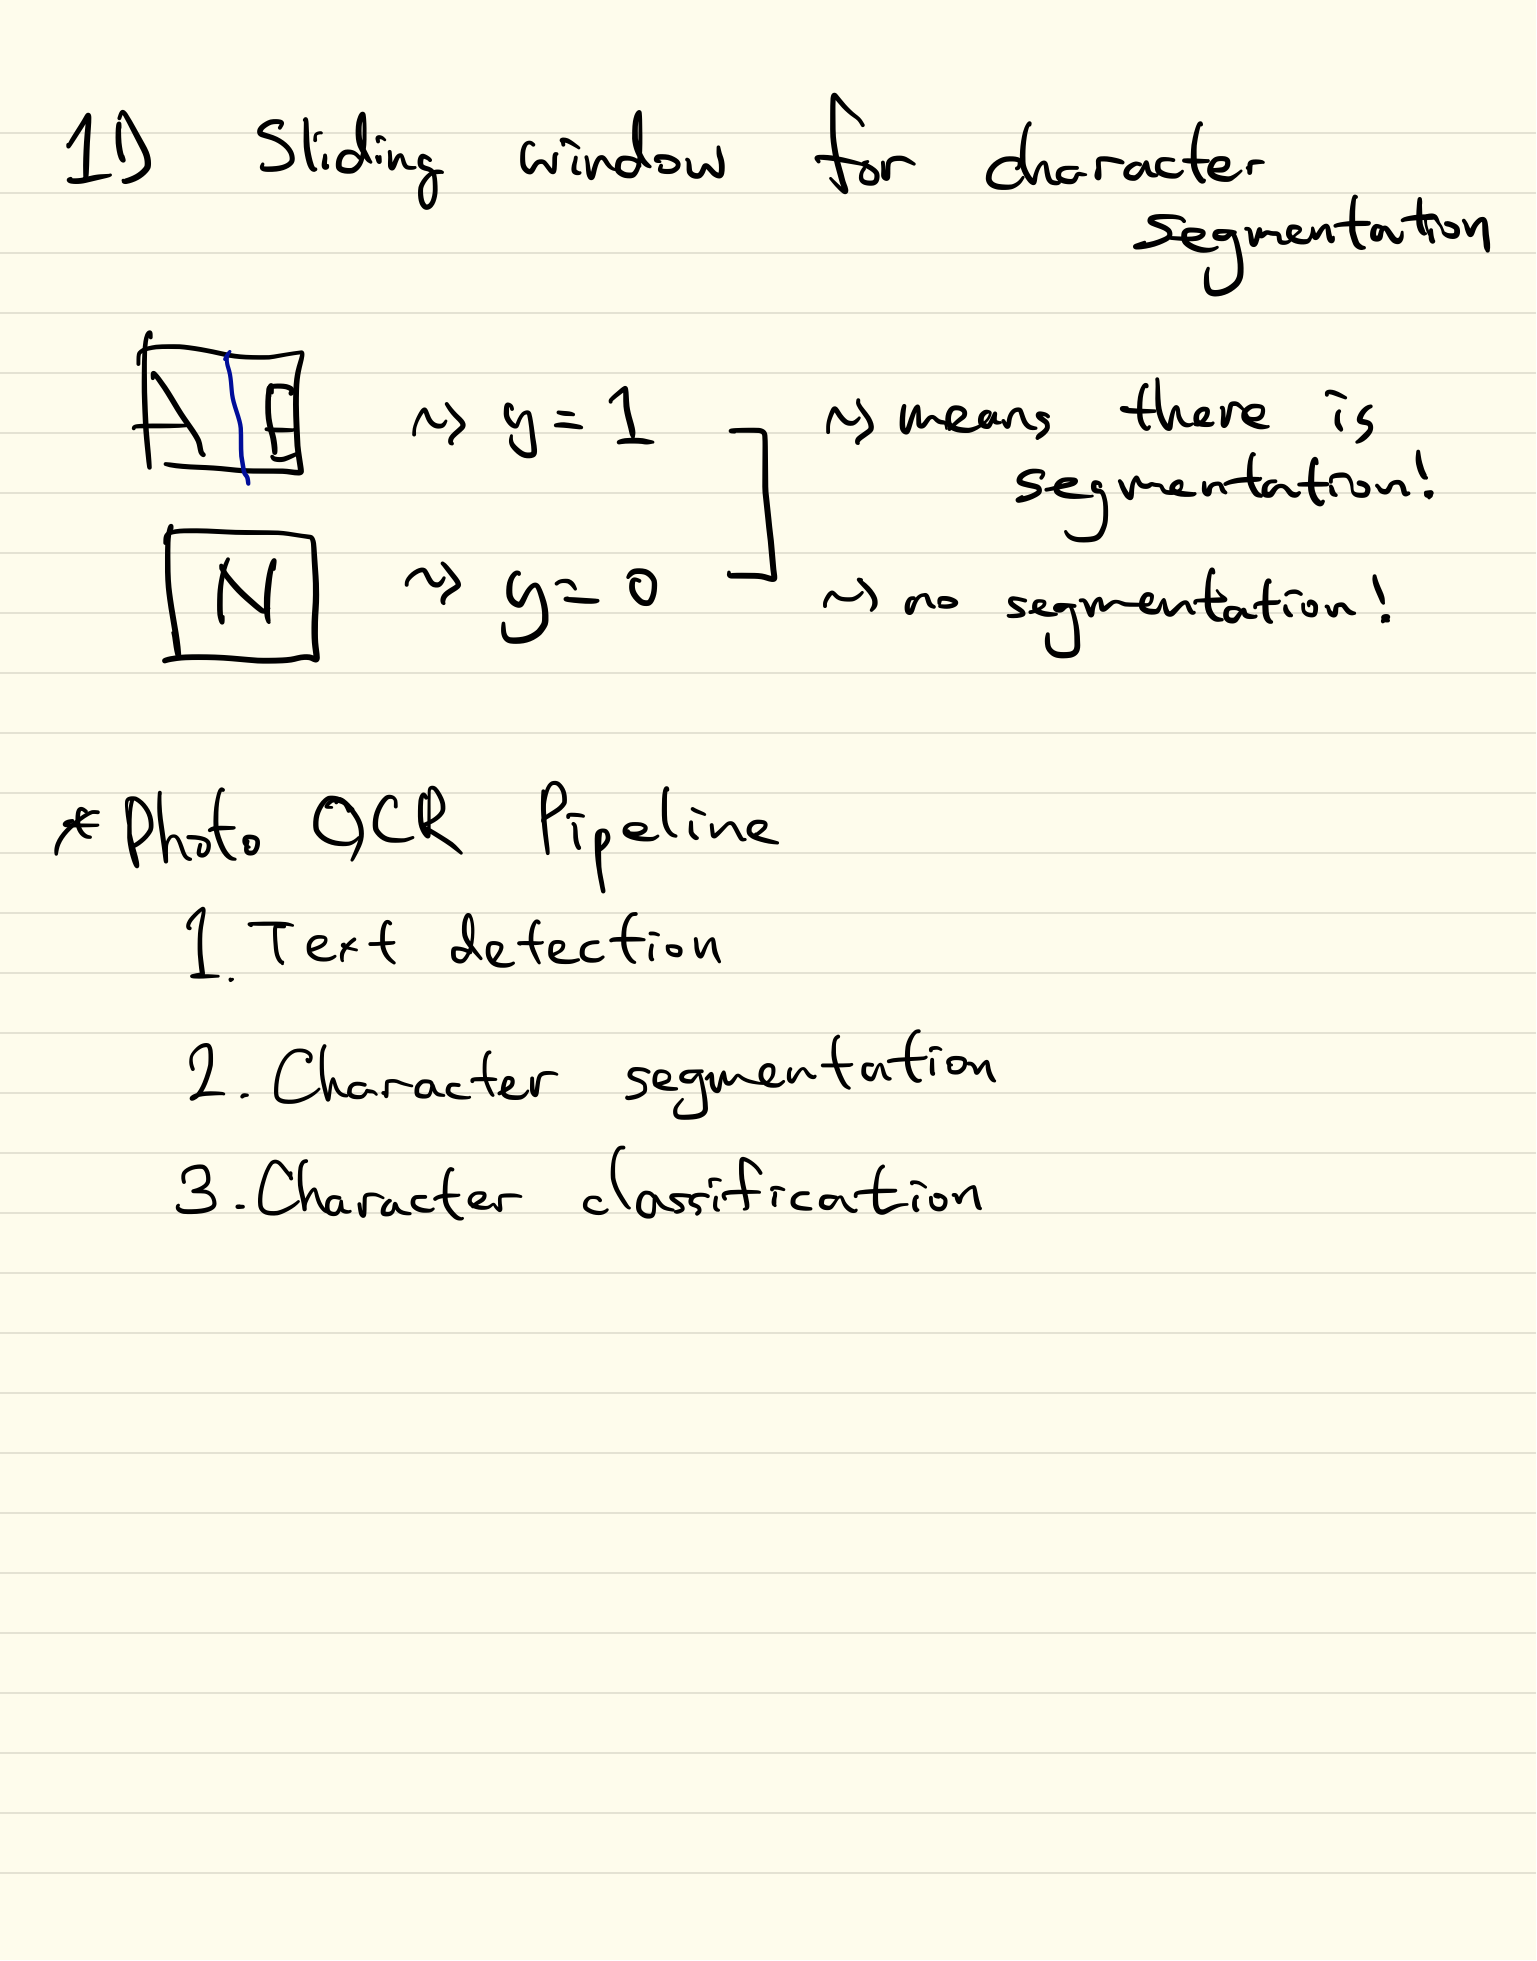 1D Sliding window for character
segmentation
A B ⇝ y = 1 ⇝ means there is
segmentation!
N ⇝ y = 0 ⇝ no segmentation!
* Photo OCR Pipeline
1. Text detection
2. Character segmentation
3. Character classification